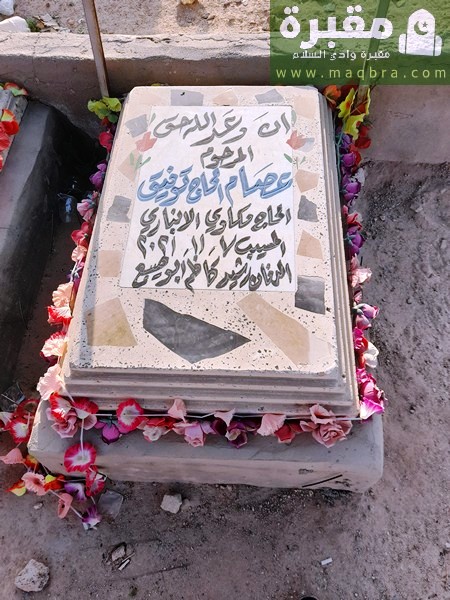 مقبرة
مقبرة وادي السلام
www.madbra.com
ان وعد الله حق
المرحوم
عصام الحاج توفيق
الحاج مكاوي الانباري
المسيب ٧ / ١١ / ٢٠٢١
الدفان رشيد كاظم ابو صيبع